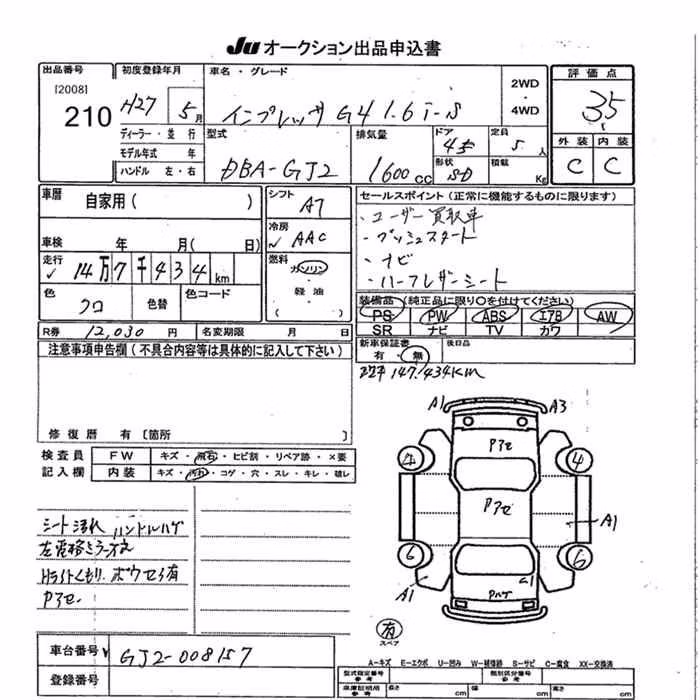 JU オークション出品申込書
出品番号
[2008]
210
初度登録年月
H27 5月
ディーラー・並行
モデル年式 年
ハンドル 左・右
車名・グレード
インプレッサ G4 1.6i-S
2WD
4WD
評価点
3.5
外装 内装
C C
型式
DBA-GJ2
排気量
1600cc
ドア
形状
SD
定員
5人
積載
Kg
車歴
自家用( )
車検 年 月( 日)
走行
14万7千434km
色
クロ
色替
色コード
シフト
AT
冷房
AAC
燃料
ガソリン
・
軽油
( )
セールスポイント(正常に機能するものに限ります)
・ユーザー買取車
・プッシュスタート
・ナビ
・ハーフレザーシート
装備品(純正品に限り○を付けてください)
PS PW ABS エアB AW
SR ナビ TV カワ
R券 12,030円 名変期限 月 日
新車保証書
有・無
後日品
147,434km
注意事項申告欄(不具合内容等は具体的に記入して下さい)
修復歴 有〔箇所 〕
検査員
記入欄
FW キズ・飛石・ヒビ割・リペア跡・×要
内装 キズ・汚れ・コゲ・穴・スレ・キレ・破レ
シート汚れ ハンドルハゲ
左電格ミラー不良
Hライトくもり ボウセイ有
Pアセ
A1 A3
Pアセ
4 4
Pアセ
A1
6 6
A1
C1
Pハゲ
有
スペア
車台番号 GJ2-008157
登録番号
A-キズ E-エクボ U-凹み W-補修跡 S-サビ C-腐食 XX-交換済
型式指定番号
参考
類別区分番号
参考
車庫証明用
参考
長さ cm
幅 cm
高さ cm